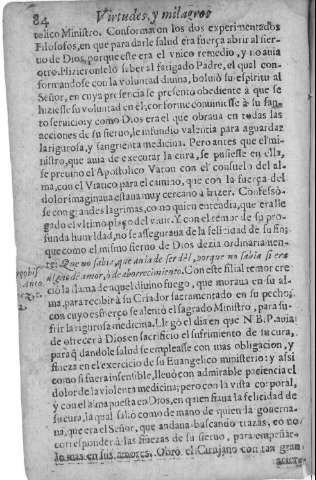 84 Virtudes, y milagros
tolico Ministro. Conformaron los dos experimentados
Filosofos, en que para darle salud era fuerça abrir al sier-
uo de Dios, porque este era el vnico remedio, y no auia
otro. Hizieronselo saber al fatigado Padre, el qual con-
formandose con la voluntad diuina, boluiò su espiritu al
Señor, en cuya presencia se presento obediente à que se
hiziesse su voluntad en èl, conforme conuiniesse à su san-
to seruicio; y como Dios era el que obraua en todas las
acciones de su sieruo, le infundio valentia para aguardar
la rigurosa, y sangrienta medicina. Pero antes que el mi-
nistro, que auia de executar la cura, se pusiesse en ella,
se preuino el Apostolico Varon con el consuelo del al-
ma, con el Viatico para el camino, que con la fuerça del
dolor imaginaua estaua muy cercano à hazer. Confessò-
se con grandes lagrimas, como quien entendia, que era lle-
gado el vltimo plaço del viuir. Y con el temor de su pro-
funda humildad, no se asseguraua de la felicidad de su fin;
que como el mismo sieruo de Dios dezia ordinariamen-
te: Que no sabia, que auia de ser dèl, porque no sabia si era
algno de amor, ò de aborrecimiento. Con este filial temor cre
ciò la llama de aquel diuino fuego, que moraua en su al-
ma, para recibir à su Criador sacramentado en su pecho;
con cuyo esfuerço se alentò el sagrado Ministro, para su-
frir la rigurosa medicina. Llegò el dia en que N. B. P. auia
de ofrecer à Dios en sacrificio el sufrimiento de la cura,
para q̃ dandole salud se empleasse con mas obligacion, y
fineza en el exercicio de su Euangelico ministerio: y assi
como si fuera insensible, lleuò con admirable paciencia el
dolor de la violenta medicina; pero con la vista corporal,
y con el alma puesta en Dios, en quien fiaua la felicidad de
su cura, la qual saliò como de mano de quien la gouerna-
ua, que era el Señor, que andaua buscando trazas, como
corresponder à las finezas de su sieruo, para empeñar-
le mas en sus amores. Obrò el Cirujano con tan gran